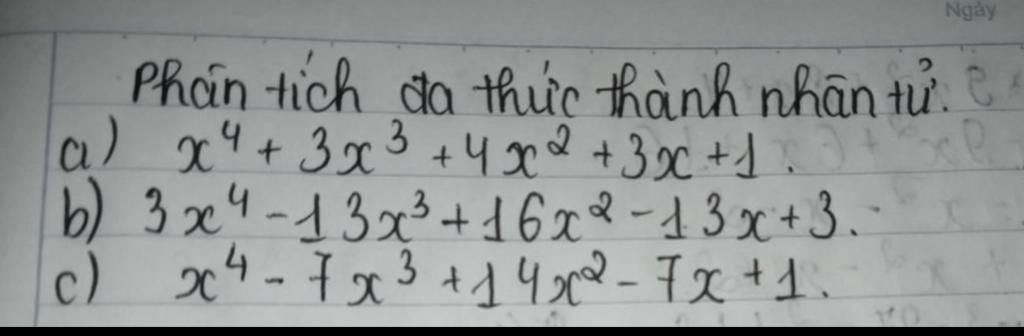 Ngày
Phân tích đa thức thành nhân tử.
a) x⁴ + 3x³ + 4x² + 3x + 1.
b) 3x⁴ - 13x³ + 16x² - 13x + 3.
c) x⁴ - 7x³ + 14x² - 7x + 1.